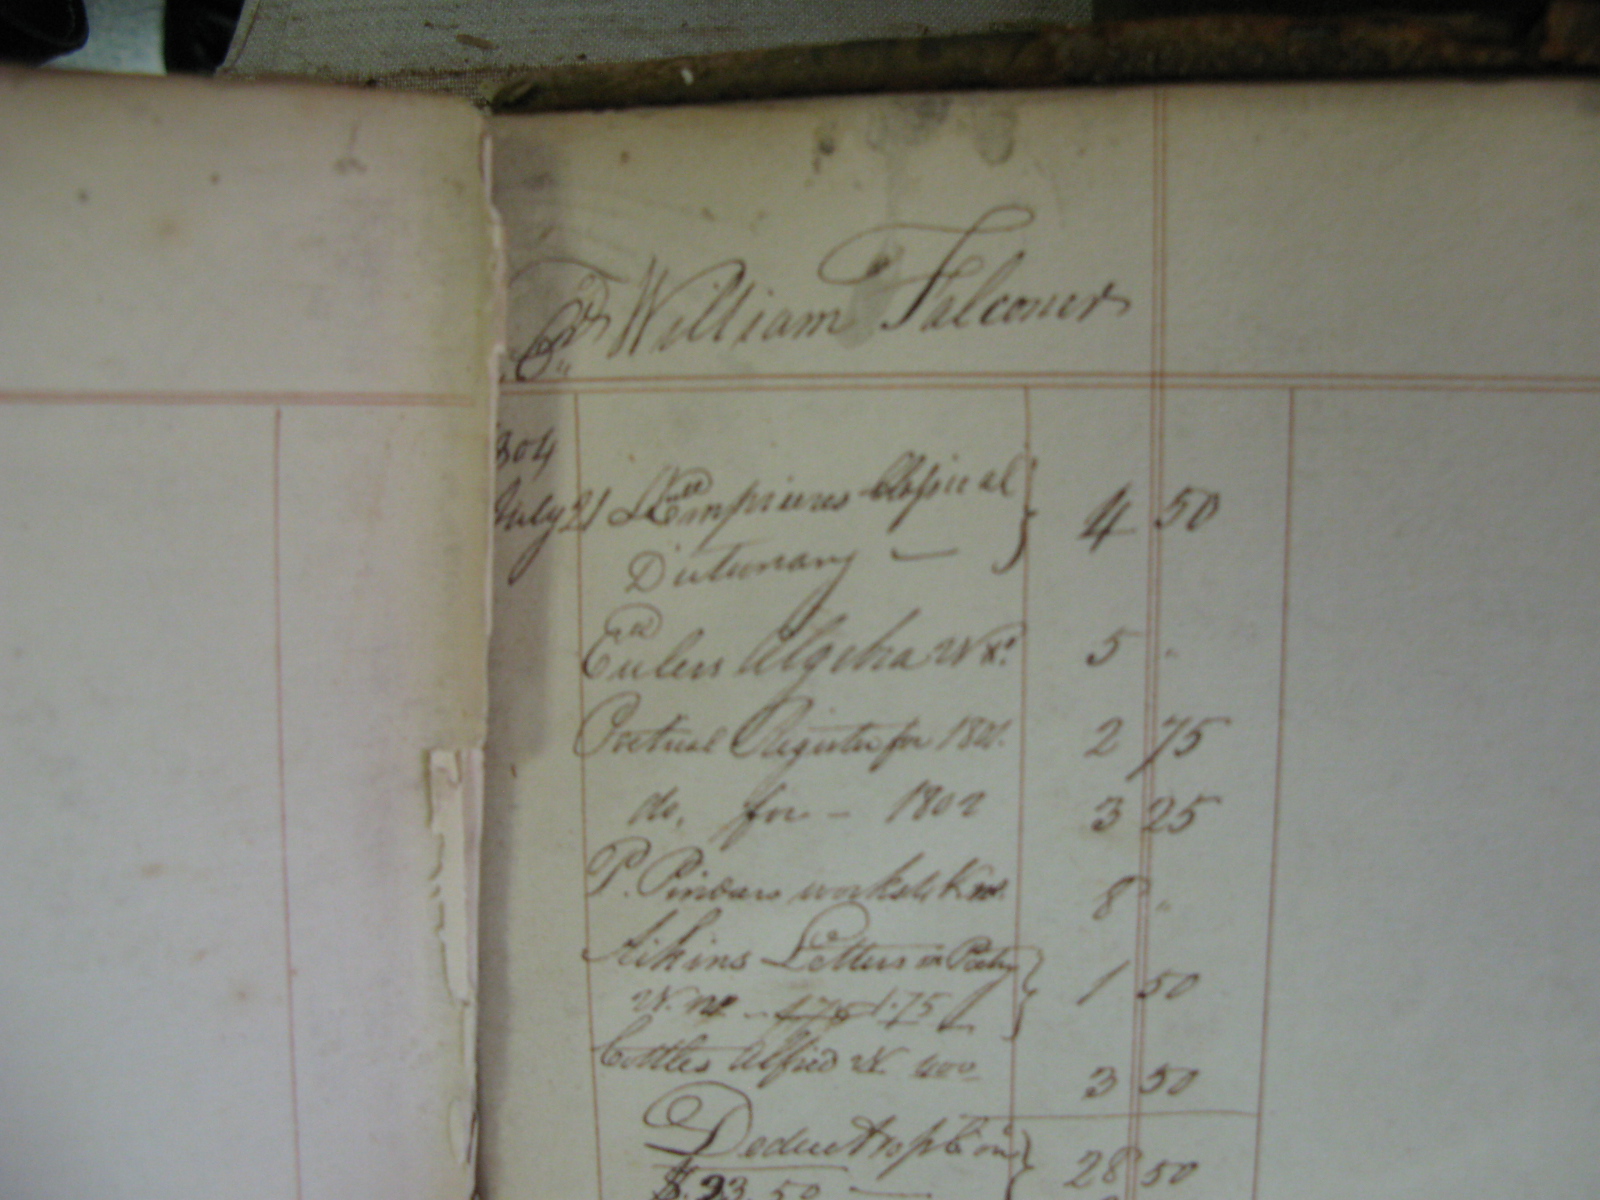 Cr. William Falconer
804
July 21 Lemprieres Classical 4 50
Dictionary —
Eulers Algebra 5 "
Poetical Register for 1801. 2 75
do. for - 1802 3 25
P. Pindars works 8 "
Aikins Letters on Poetry 1 50
1.75
Cottles Alfred 3 50
Deduct 28 50
$.23.50 —